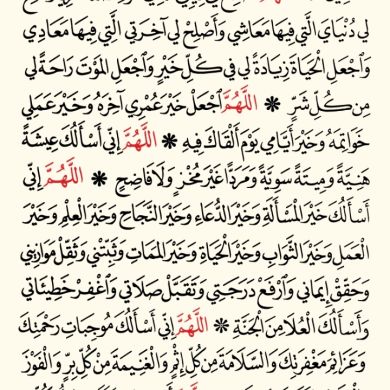 لِي دُنْيَايَ الَّتِي فِيهَا مَعَاشِي وَأَصْلِحْ لِي آخِرَتِي الَّتِي فِيهَا مَعَادِي
وَاجْعَلِ الْحَيَاةَ زِيَادَةً لِي فِي كُلِّ خَيْرٍ وَاجْعَلِ الْمَوْتَ رَاحَةً لِي
مِنْ كُلِّ شَرٍّ * اللَّهُمَّ اجْعَلْ خَيْرَ عُمْرِي آخِرَهُ وَخَيْرَ عَمَلِي
خَوَاتِمَهُ وَخَيْرَ أَيَّامِي يَوْمَ أَلْقَاكَ فِيهِ * اللَّهُمَّ إِنِّي أَسْأَلُكَ عِيشَةً
هَنِيَّةً وَمِيتَةً سَوِيَّةً وَمَرَدًّا غَيْرَ مُخْزٍ وَلَا فَاضِحٍ * اللَّهُمَّ إِنِّي
أَسْأَلُكَ خَيْرَ الْمَسْأَلَةِ وَخَيْرَ الدُّعَاءِ وَخَيْرَ النَّجَاحِ وَخَيْرَ الْعِلْمِ وَخَيْرَ
الْعَمَلِ وَخَيْرَ الثَّوَابِ وَخَيْرَ الْحَيَاةِ وَخَيْرَ الْمَمَاتِ وَثَبِّتْنِي وَثَقِّلْ مَوَازِينِي
وَحَقِّقْ إِيمَانِي وَارْفَعْ دَرَجَتِي وَتَقَبَّلْ صَلَاتِي وَاغْفِرْ خَطِيئَاتِي
وَأَسْأَلُكَ الْعُلَا مِنَ الْجَنَّةِ * اللَّهُمَّ إِنِّي أَسْأَلُكَ مُوجِبَاتِ رَحْمَتِكَ
وَعَزَائِمَ مَغْفِرَتِكَ وَالسَّلَامَةَ مِنْ كُلِّ إِثْمٍ وَالْغَنِيمَةَ مِنْ كُلِّ بِرٍّ وَالْفَوْزَ